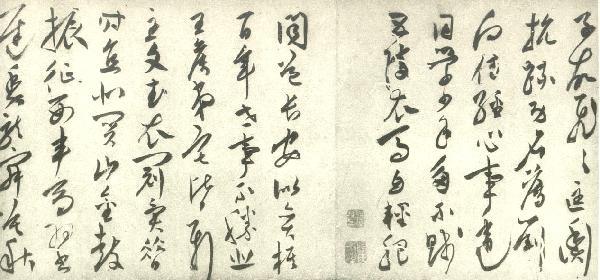 子故飛〻匡衡
抗疏功名薄劉
向傳經心事違
同學少年多不賤
五陵衣馬自輕肥
聞道長安似弈棋
百年世事不勝悲
王侯第宅皆新
主文武衣冠異昔
時直北關山金鼓
振征西車馬羽書
遲魚龍寂寞秋